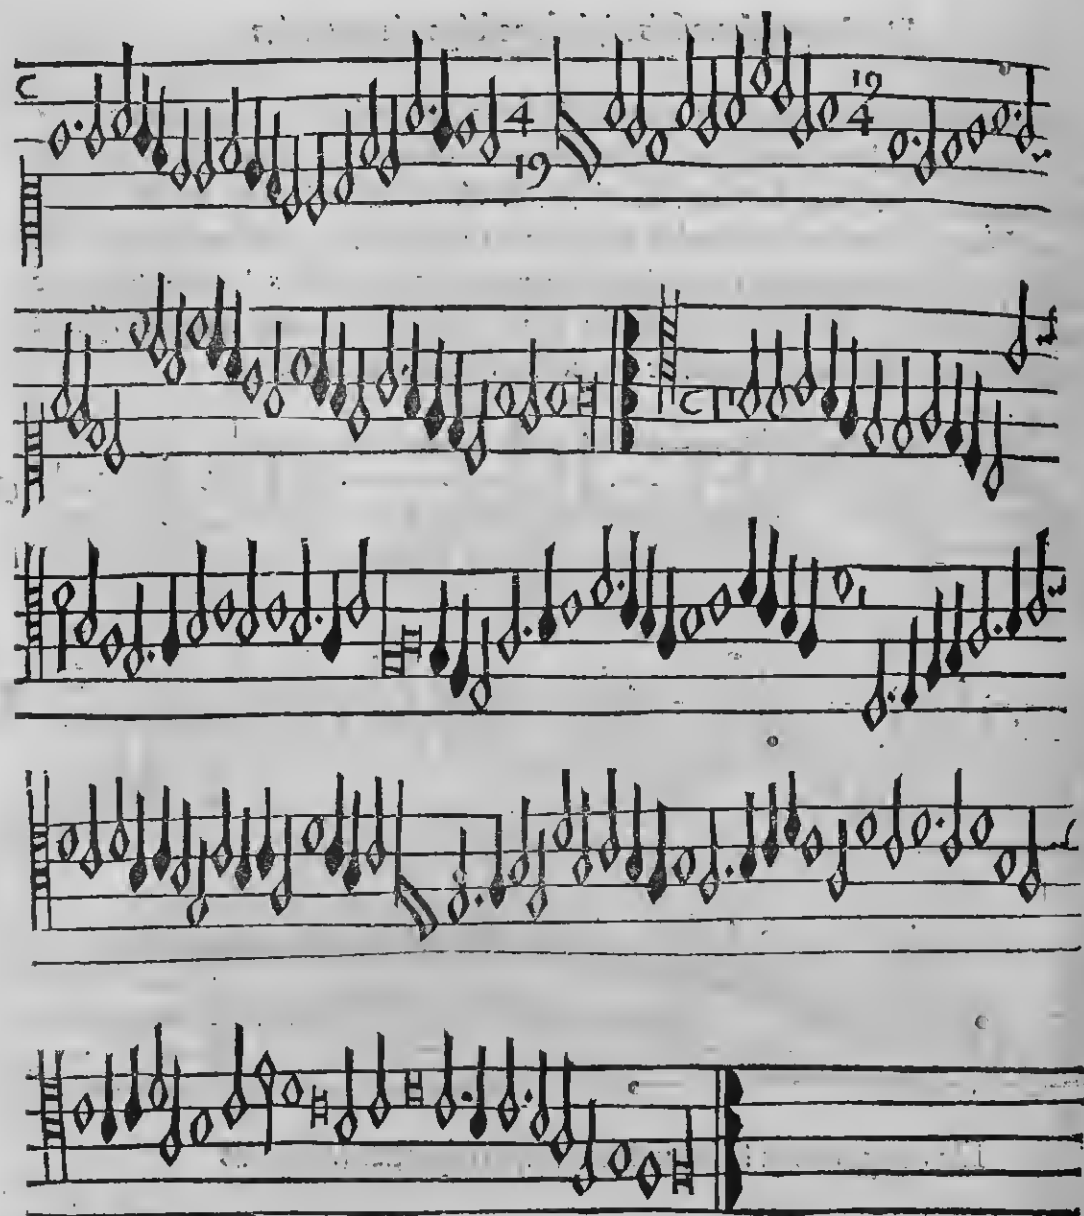 C 4 19
19 4
C